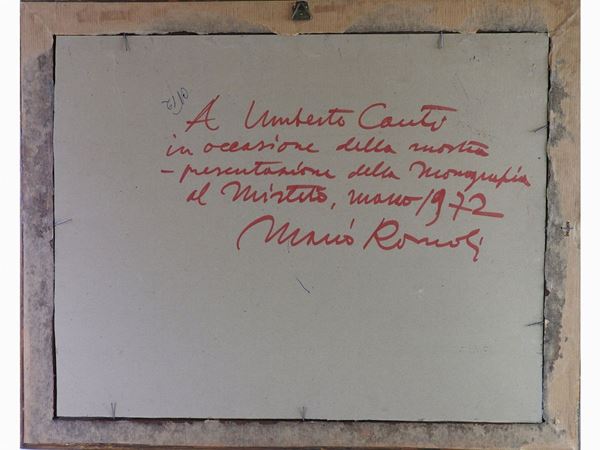 A Umberto Conti
in occasione della mostra
- presentazione della monografia
al Mirteto, marzo 1972
Mario Romoli